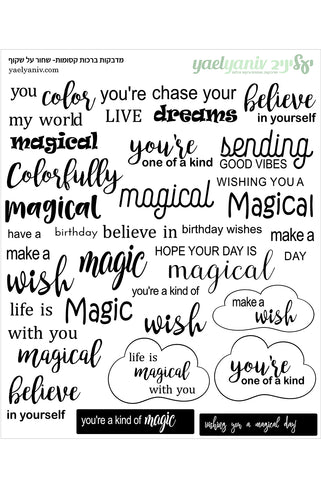 מדבקות ברכות קסומות- שחור על שקוף
yaelyaniv.com
yaelyaniv יעליניב
you color you're chase your believe
my world LIVE dreams in yourself
magical you're one of a kind sending GOOD VIBES
Colorfully magical WISHING YOU A
magical Magical
have a birthday believe in birthday wishes make a
make a wish magic HOPE YOUR DAY IS DAY
magical
you're a kind of
life is Magic wish make a wish
with you
magical life is magical with you you're one of a kind
believe
in yourself
you're a kind of magic wishing you a magical day